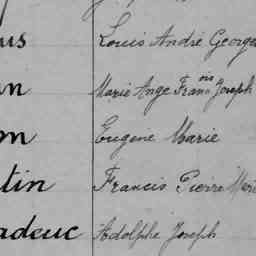 us Louis André George
n Marie Ange Fran^ois Joseph
m Eugène Marie
tin Francis Pierre Marie
adeuc Adolphe Joseph